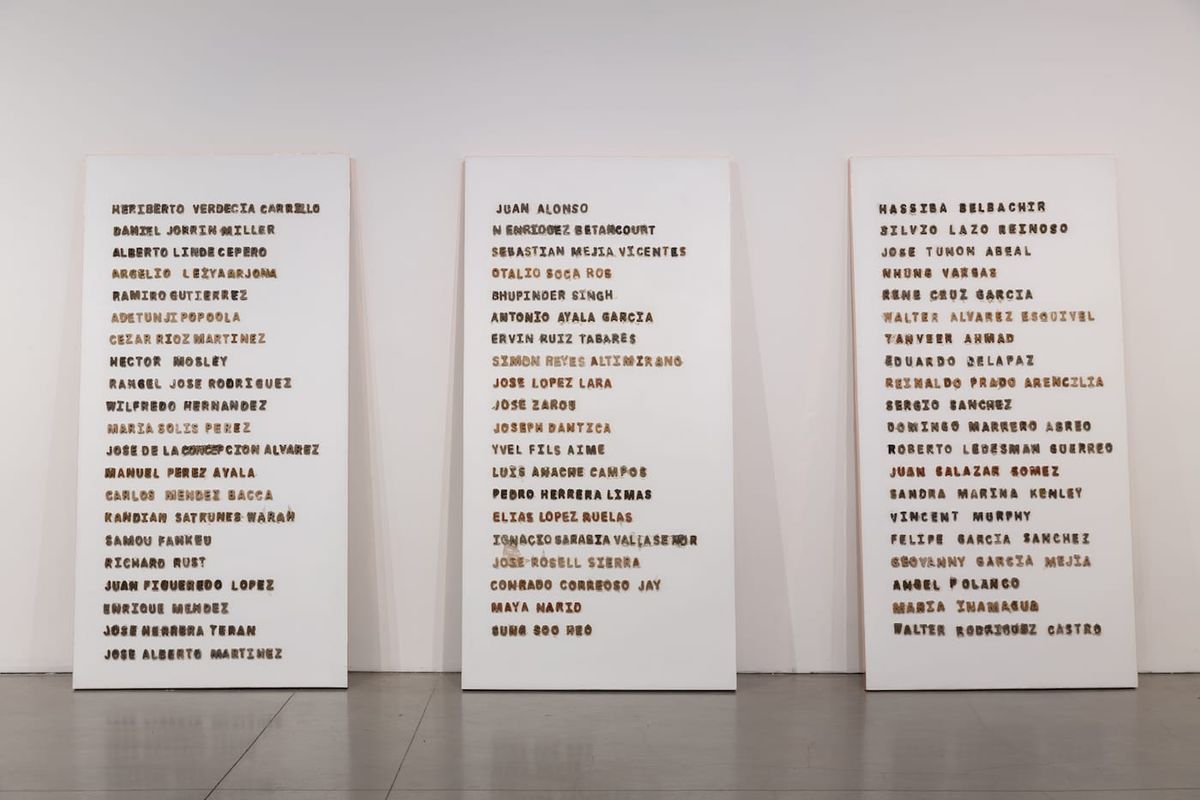 HERIBERTO VERDECIA CARRILLO
DANIEL JORRIN MILLER
ALBERTO LINDE CEPERO
ARGELIO LEIYA ARJONA
RAMIRO GUTIERREZ
ADETUNJI POPOOLA
CEZAR RIOZ MARTINEZ
HECTOR MOSLEY
RANGEL JOSE RODRIGUEZ
WILFREDO HERNANDEZ
MARIA SOLIS PEREZ
JOSE DE LA CONCEPCION ALVAREZ
MANUEL PEREZ AYALA
CARLOS MENDEZ BACCA
KANDIAN SATRUNES WARAH
SAMOU FANKEU
RICHARD RUST
JUAN FIGUEREDO LOPEZ
ENRIQUE MENDEZ
JOSE HERRERA TERAN
JOSE ALBERTO MARTINEZ
JUAN ALONSO
N ENRIQUEZ BETANCOURT
SEBASTIAN MEJIA VICENTES
OTALIO SOCA ROS
BHUPINDER SINGH
ANTONIO AYALA GARCIA
ERVIN RUIZ TABARES
SIMON REYES ALTIMIRANO
JOSE LOPEZ LARA
JOSE ZAROS
JOSEPH DANTICA
YVEL FILS AIME
LUIS ANACHE CAMPOS
PEDRO HERRERA LIMAS
ELIAS LOPEZ RUELAS
IGNACIO SARABIA
JOSE ROSELL SIERRA
CONRADO CORREOSO JAY
MAYA NARID
SUNG SOO HEO
HASSIBA BELBACHIR
SILVIO LAZO REINOSO
JOSE TUNON ABEAL
NHUNG VARGAS
RENE CRUZ GARCIA
WALTER ALVAREZ ESQUIVEL
TANVEER AHMAD
EDUARDO DELAPAZ
REINALDO PRADO ARENCILIA
SERGIO SANCHEZ
DOMINGO MARRERO ABREO
ROBERTO LEDESMAN GUERREO
JUAN SALAZAR GOMEZ
SANDRA MARINA KENLEY
VINCENT MURPHY
FELIPE GARCIA SANCHEZ
GEOVANNY GARCIA MEJIA
ANGEL POLANCO
MARIA INAMAGUA
WALTER RODRIGUEZ CASTRO